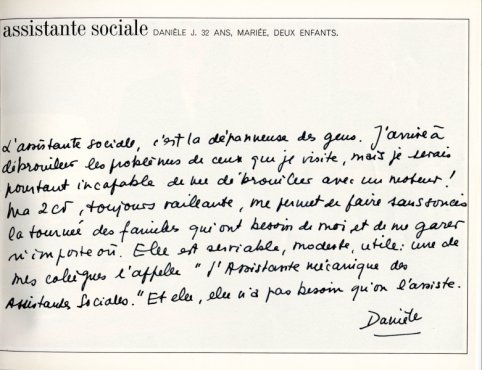 assistante sociale DANIÈLE J. 32 ANS, MARIÉE, DEUX ENFANTS.
L'assistante sociale, c'est la dépanneuse des gens. J'arrive à
débrouiller les problèmes de ceux que je visite, mais je serais
pourtant incapable de me débrouiller avec un moteur!
Ma 2 CV, toujours vaillante, me permet de faire sans soucis
la tournée des familles qui ont besoin de moi et de me garer
n'importe où. Elle est serviable, modeste, utile: une de
mes collègues l'appelle "l'Assistante mécanique des
Assistantes Sociales." Et elle, elle n'a pas besoin qu'on l'assiste.
Danièle